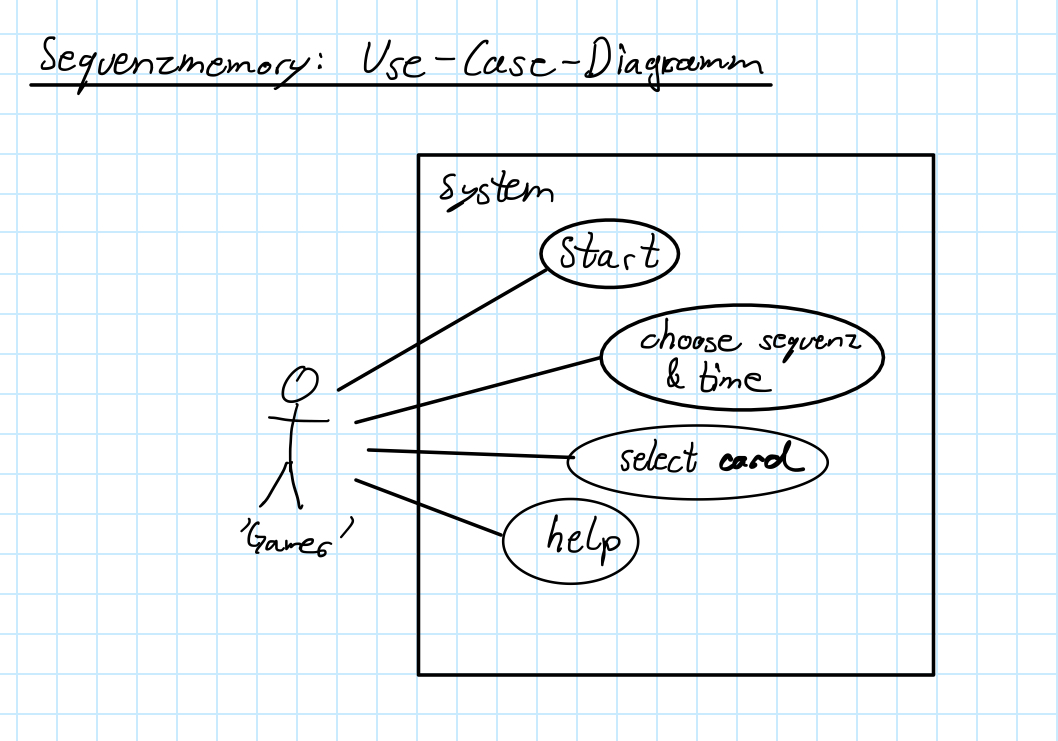 Sequenzmemory: Use-Case-Diagramm
System
Start
choose sequenz
& time
select card
help